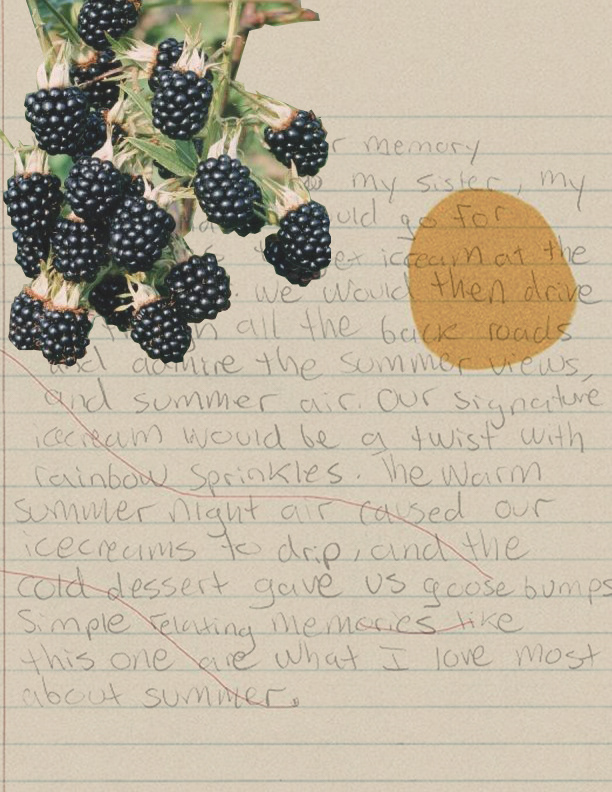 memory
my sister, my
would go for
get icecream at the
. we would then drive
all the back roads
and admire the summer views,
and summer air. Our signature
icecream would be a twist with
rainbow sprinkles. The warm
summer night air caused our
icecreams to drip, and the
cold dessert gave us goosebumps
Simple relaxing memories like
this one are what I love most
about summer.